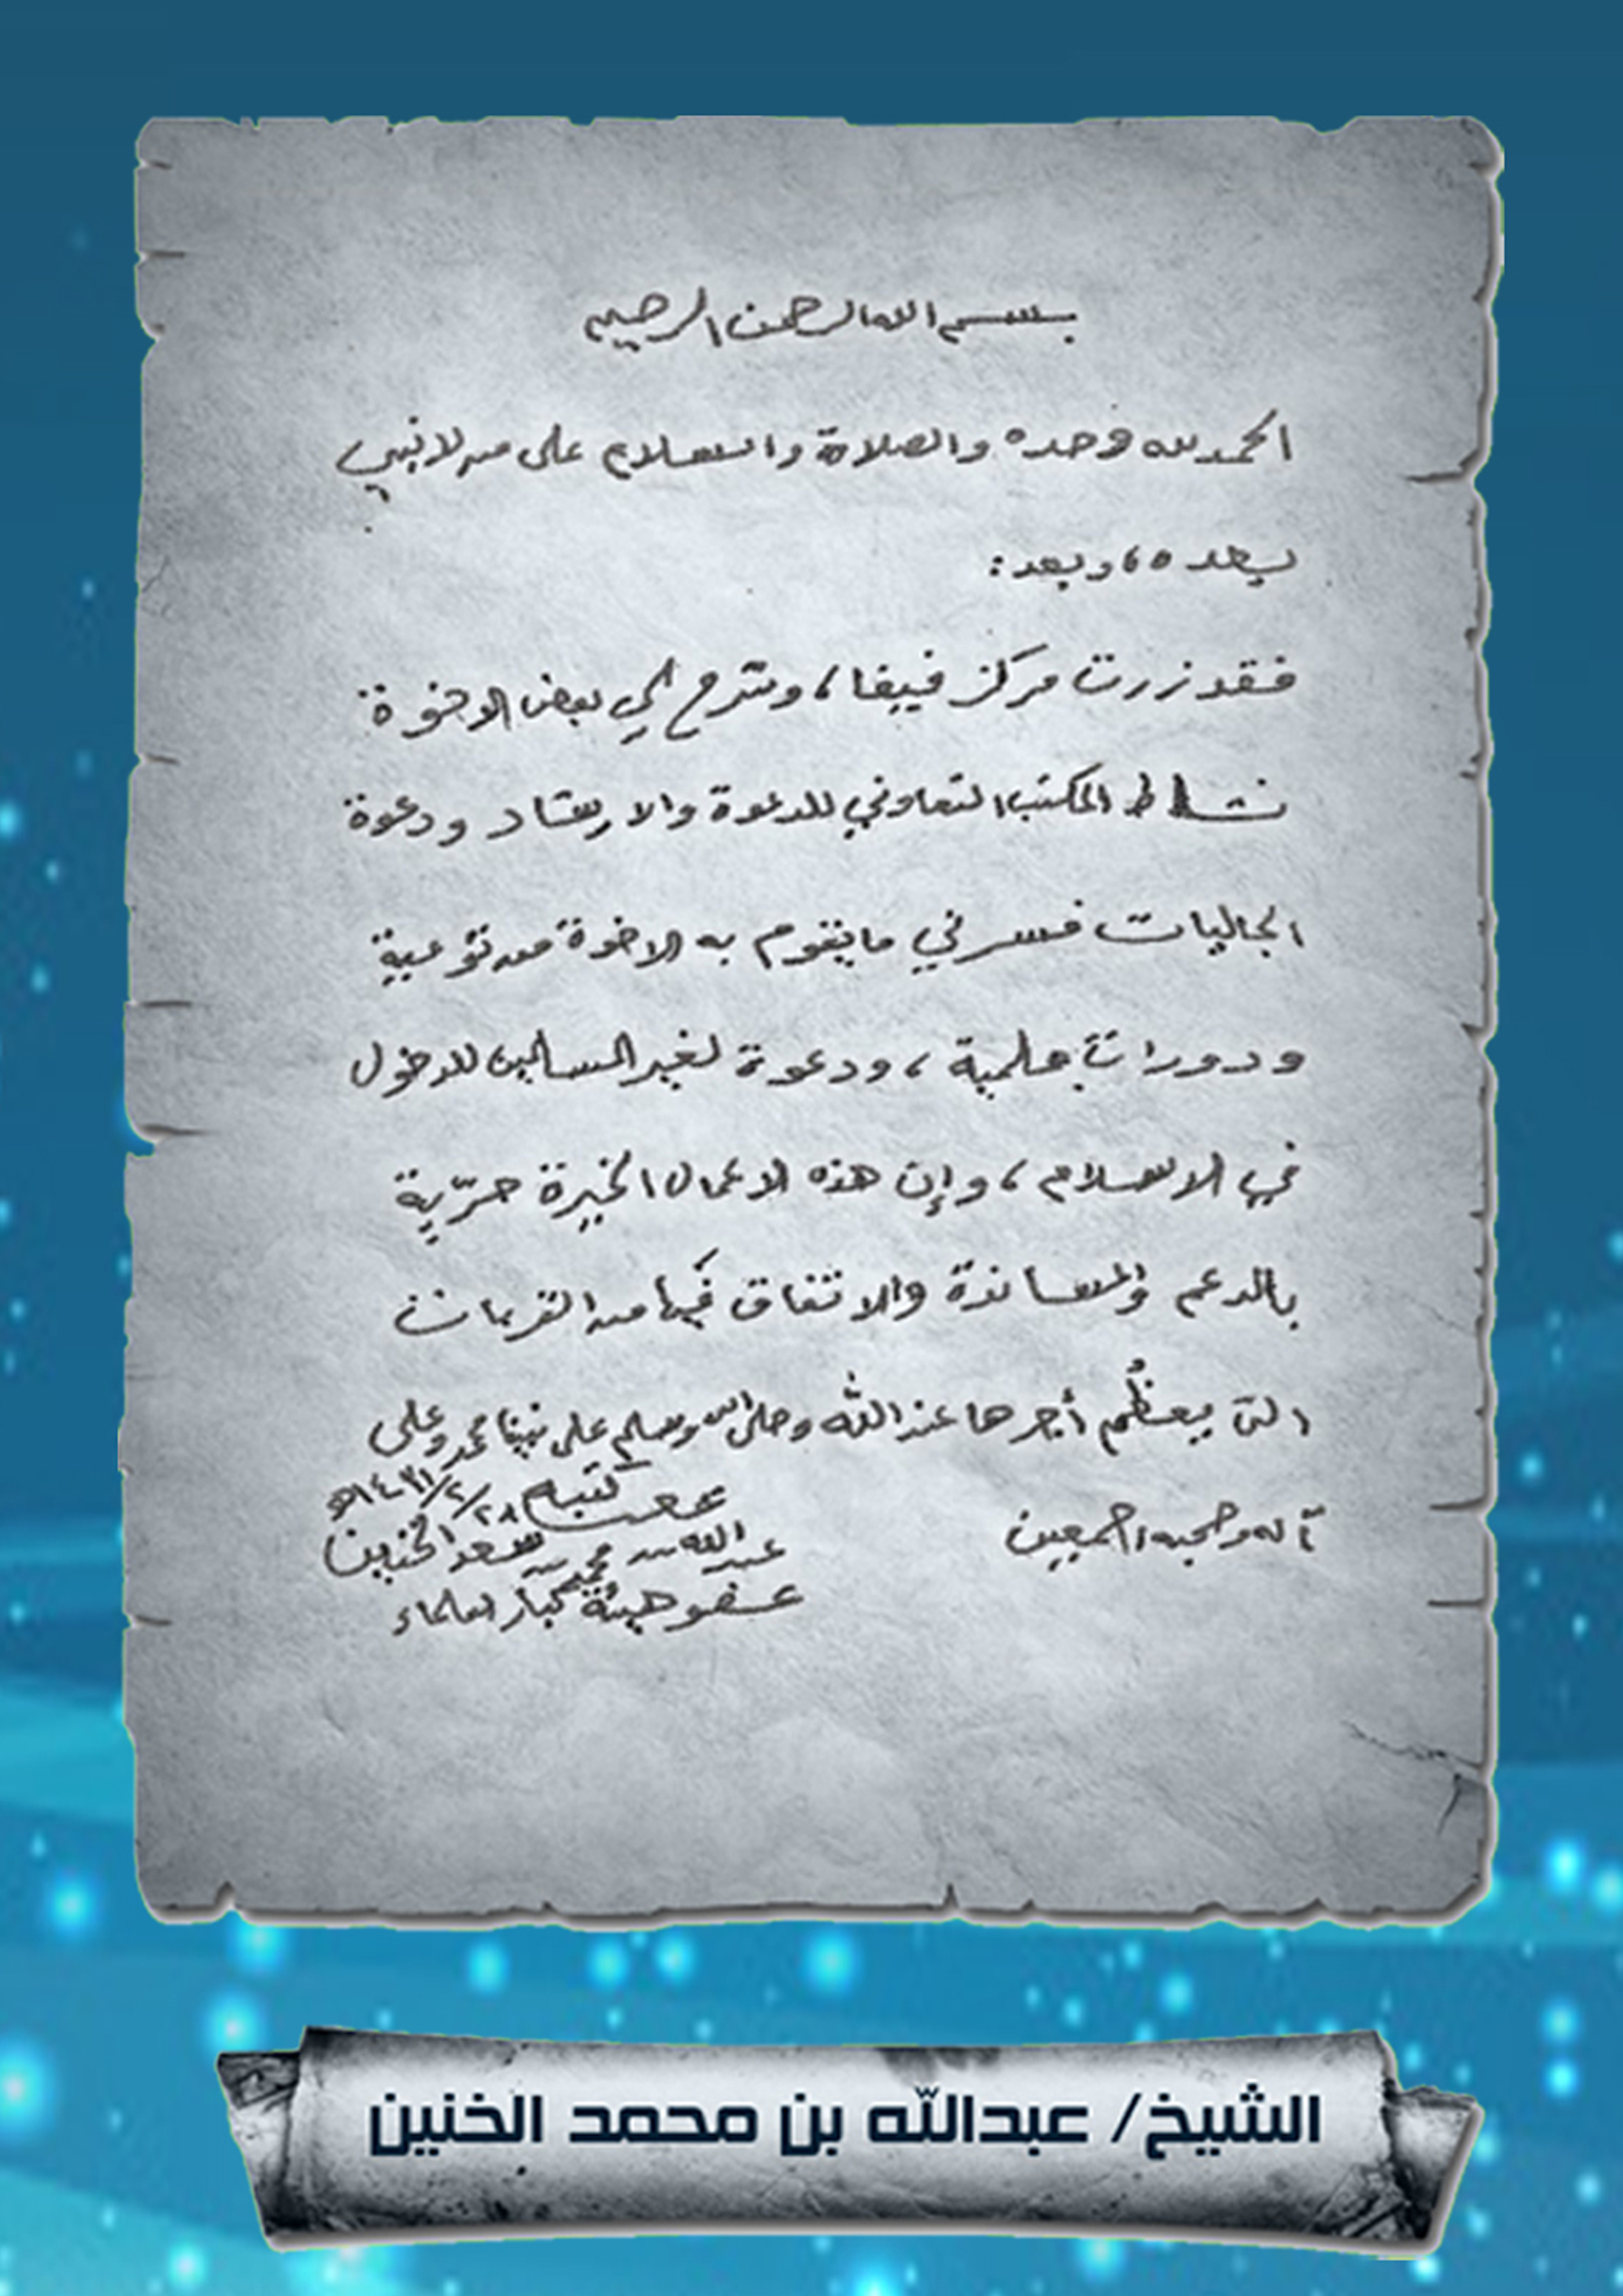 بسم الله الرحمن الرحيم
الحمد لله وحده والصلاة والسلام على من لا نبي
بعده، وبعد:
فقد زرت مركز فيفا، وشرح لي بعض الاخوة
نشاط المكتب التعاوني للدعوة والارشاد ودعوة
الجاليات فسرني ما يقوم به الاخوة من توعية
ودورات علمية، ودعوة لغير المسلمين للدخول
في الاسلام، وإن هذه الاعمال الخيرة حرّية
بالدعم والمساندة والانفاق فيها من القربات
التي يعظُم أجرها عند الله وصلى الله وسلم على نبينا محمد وعلى
آله وصحبه اجمعين
كتبه
٢٨/٢/١٤٣١هـ
عبدالله بن محمد بن سعد الخنين
عضو هيئة كبار العلماء
الشيخ/ عبدالله بن محمد الخنين